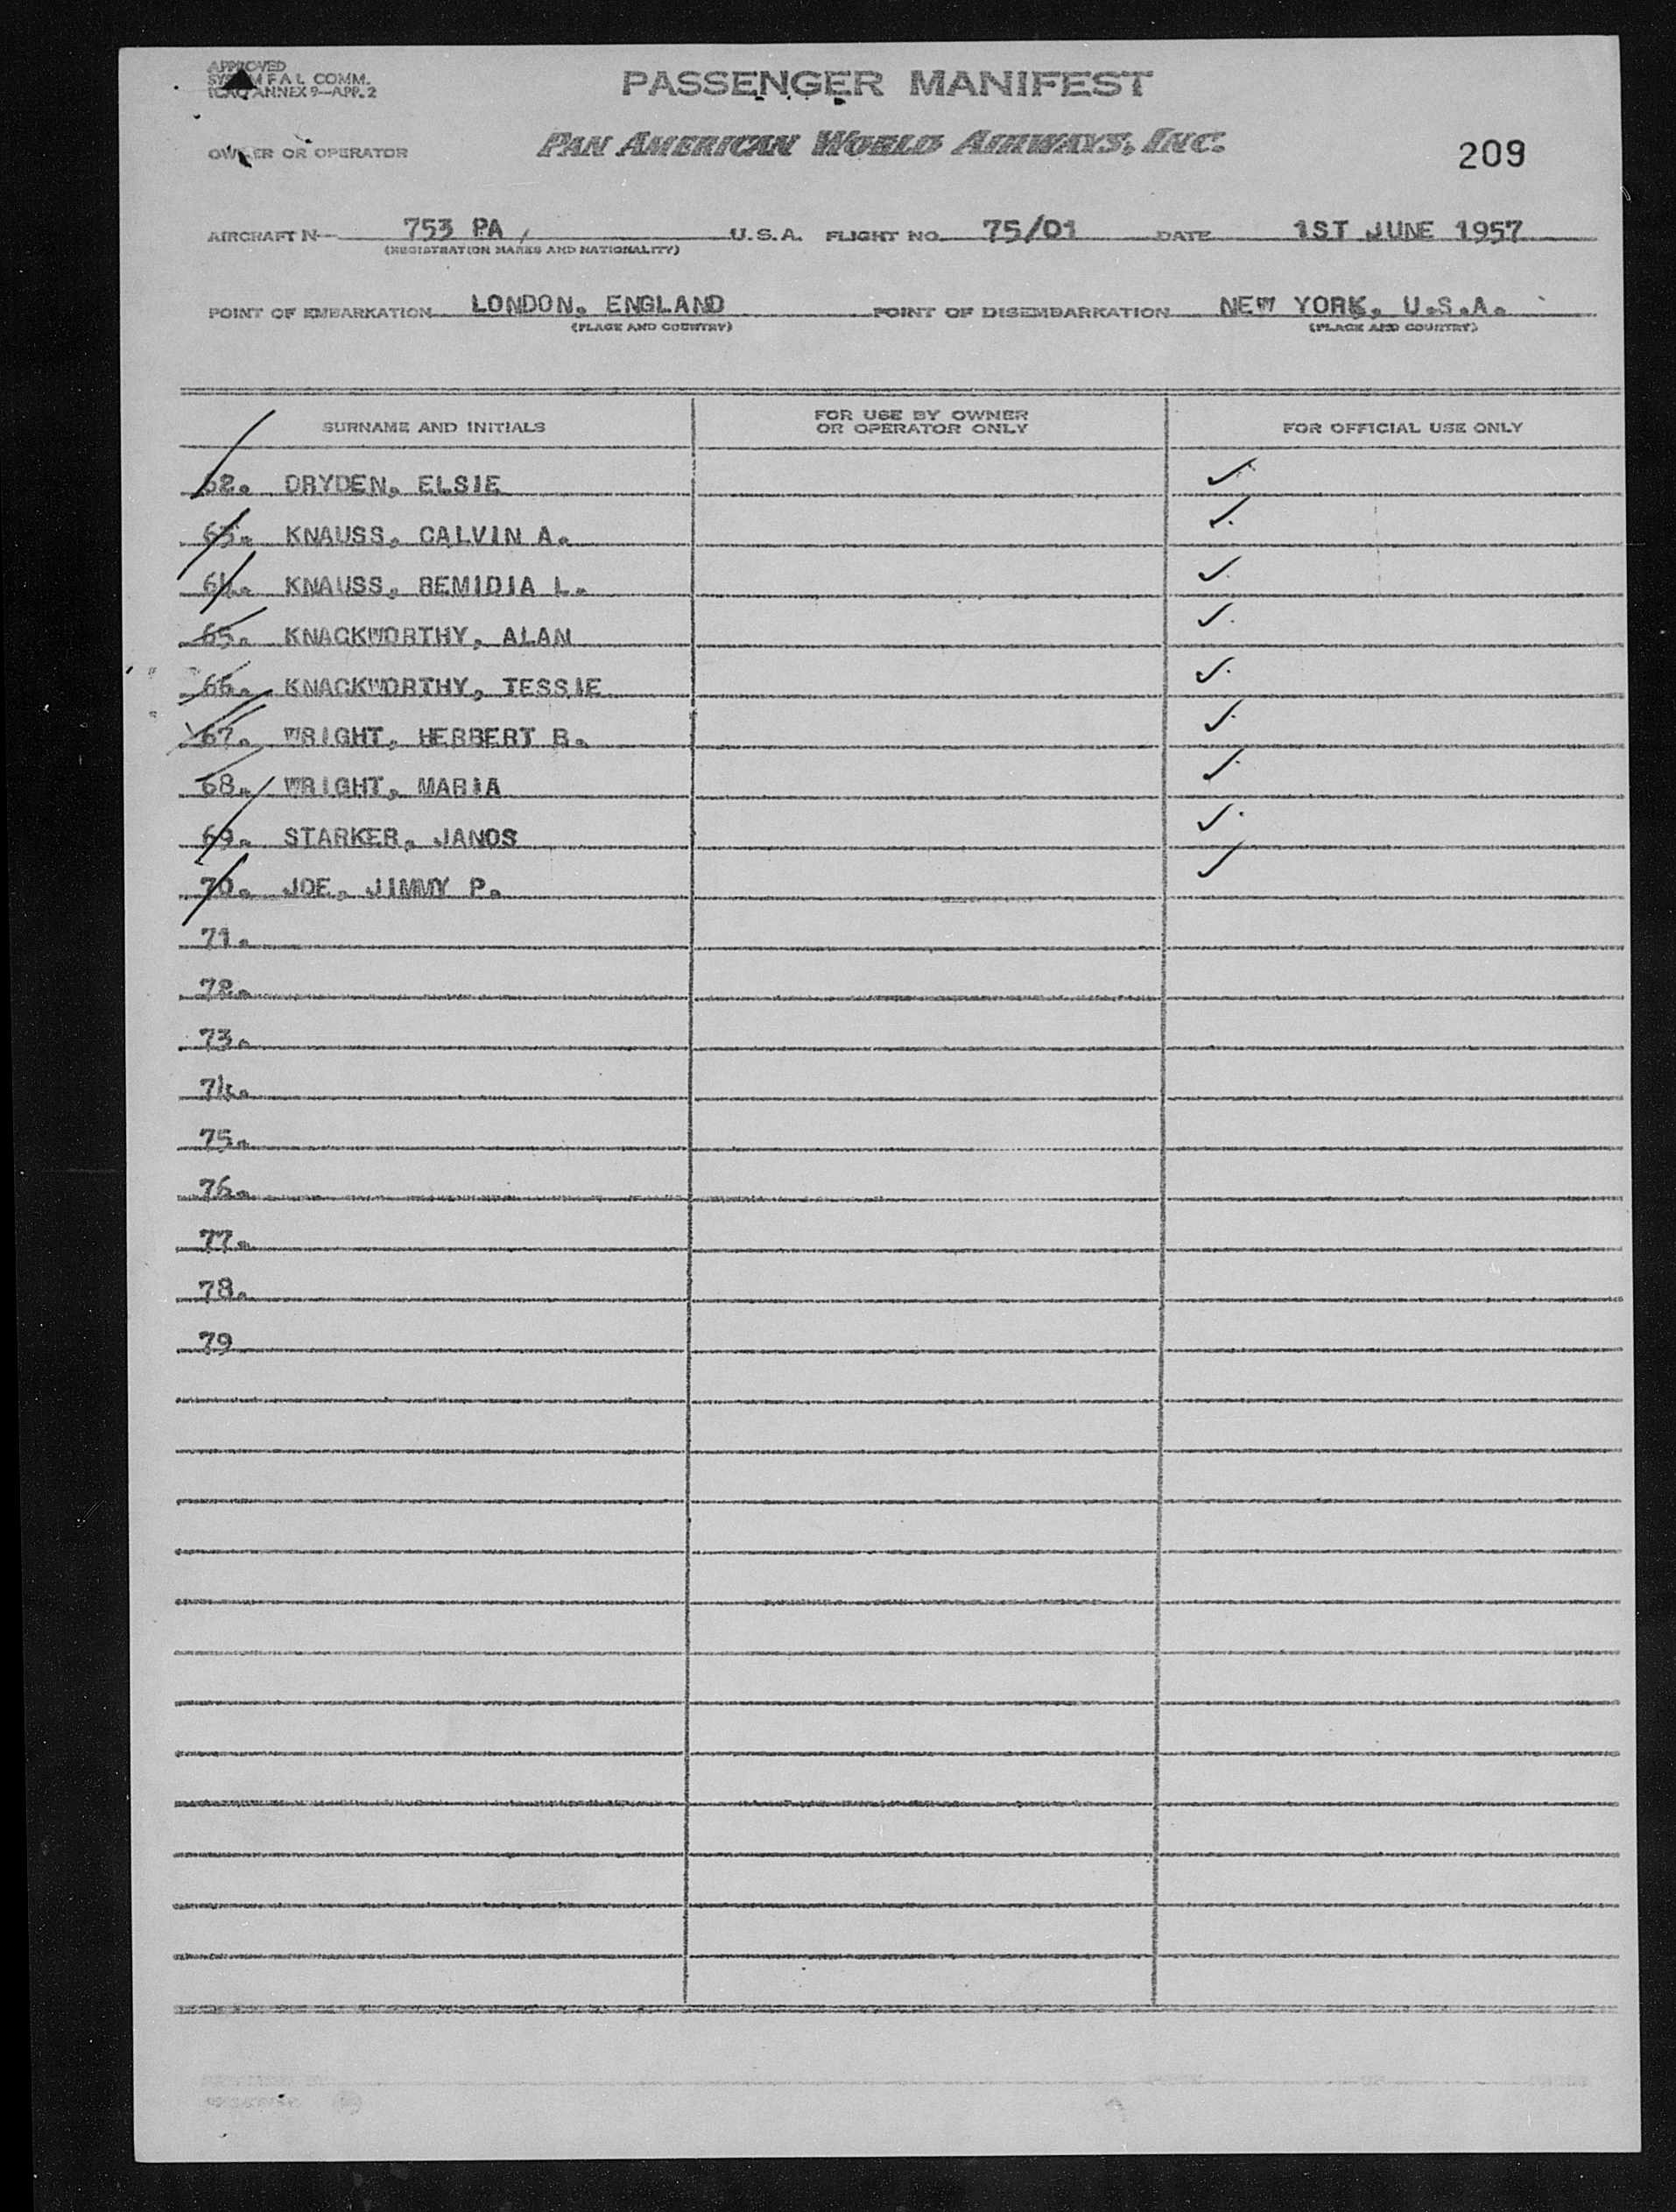 APPROVED
SYSTEM F A L COMM.
ICAO ANNEX 9—APP. 2
PASSENGER MANIFEST
OWNER OR OPERATOR
PAN AMERICAN WORLD AIRWAYS, INC.
209
AIRCRAFT N— 753 PA U.S.A. FLIGHT NO. 75/01 DATE 1ST JUNE 1957
(REGISTRATION MARKS AND NATIONALITY)
POINT OF EMBARKATION LONDON, ENGLAND POINT OF DISEMBARKATION NEW YORK, U.S.A.
(PLACE AND COUNTRY) (PLACE AND COUNTRY)
SURNAME AND INITIALS
FOR USE BY OWNER
OR OPERATOR ONLY
FOR OFFICIAL USE ONLY
62. DRYDEN, ELSIE ✓
63. KNAUSS, CALVIN A. ✓
64. KNAUSS, REMIDIA L. ✓
65. KNACKWORTHY, ALAN ✓
66. KNACKWORTHY, TESSIE ✓
67. WRIGHT, HERBERT B. ✓
68. WRIGHT, MARIA ✓
69. STARKER, JANOS ✓
70. JOE, JIMMY P. ✓
71.
72.
73.
74.
75.
76.
77.
78.
79